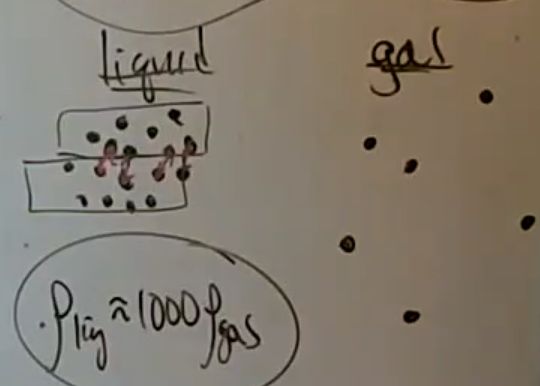 liquid
gas
ρliq ≈ 1000 ρgas